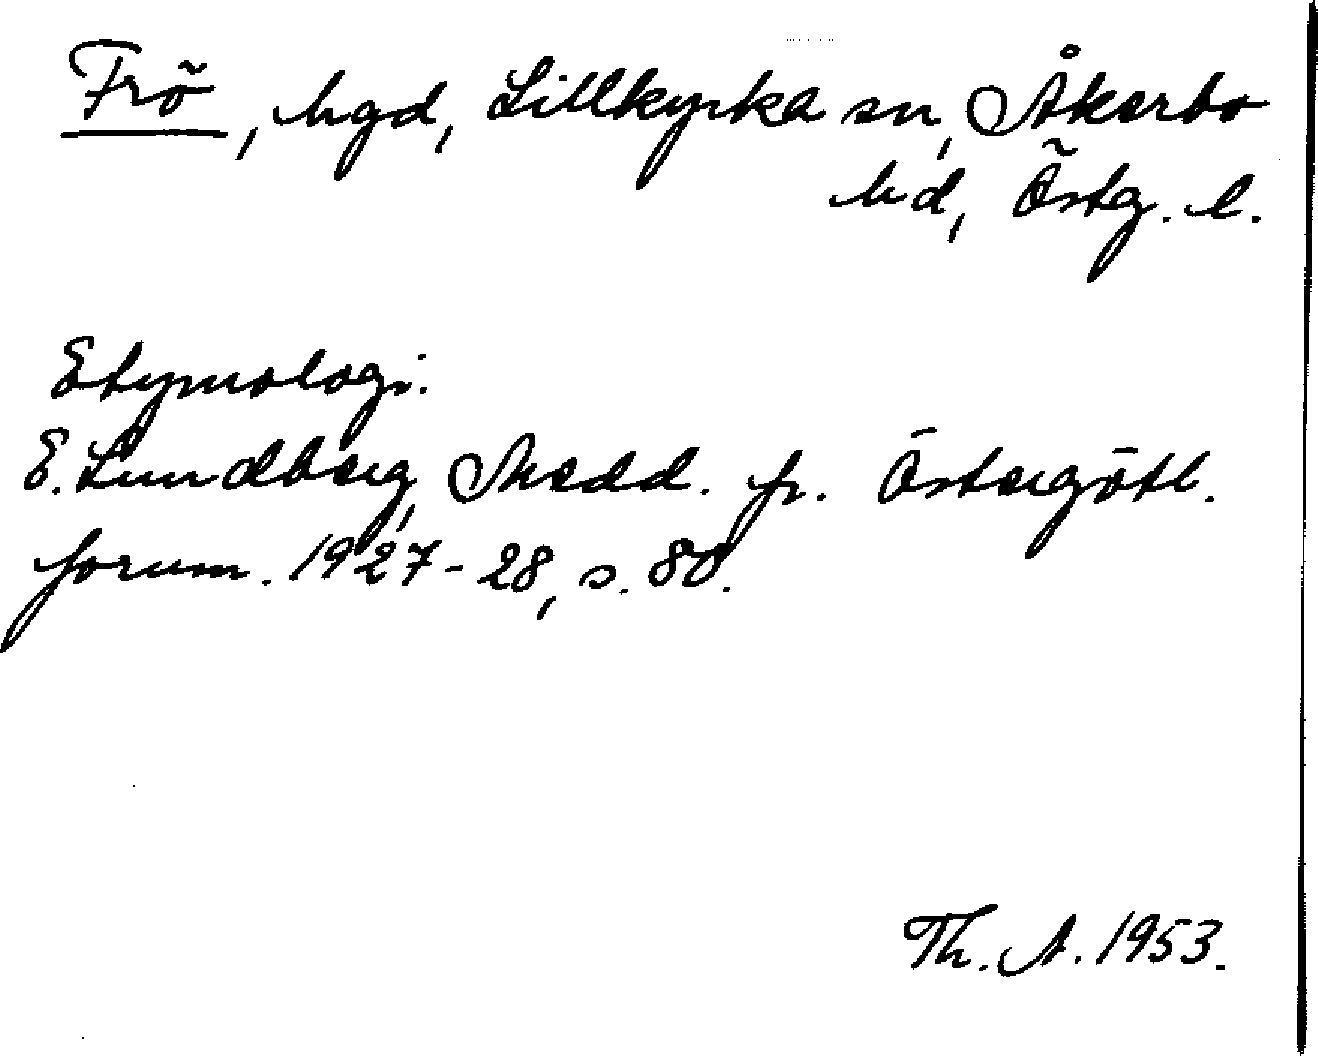 Frö, hgd, Lillkyrka sn, Åkerbo
hd, Östg. l.
Etymologi.
E. Lundberg, Medd. fr. Östergötl.
fornm. 1927-28, s. 80.
Th. A. 1953.